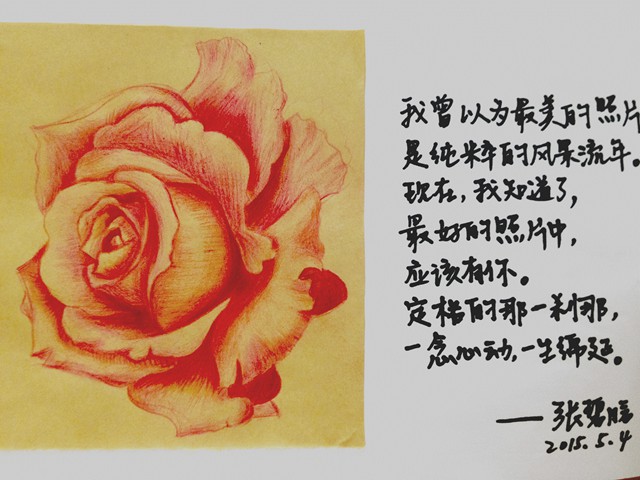 我曾以为最美的照片
是纯粹的风景流年。
现在，我知道了，
最好的照片中，
应该有你。
定格的那一刹那，
一念心动，一生绵延。
——张碧
2015.5.4